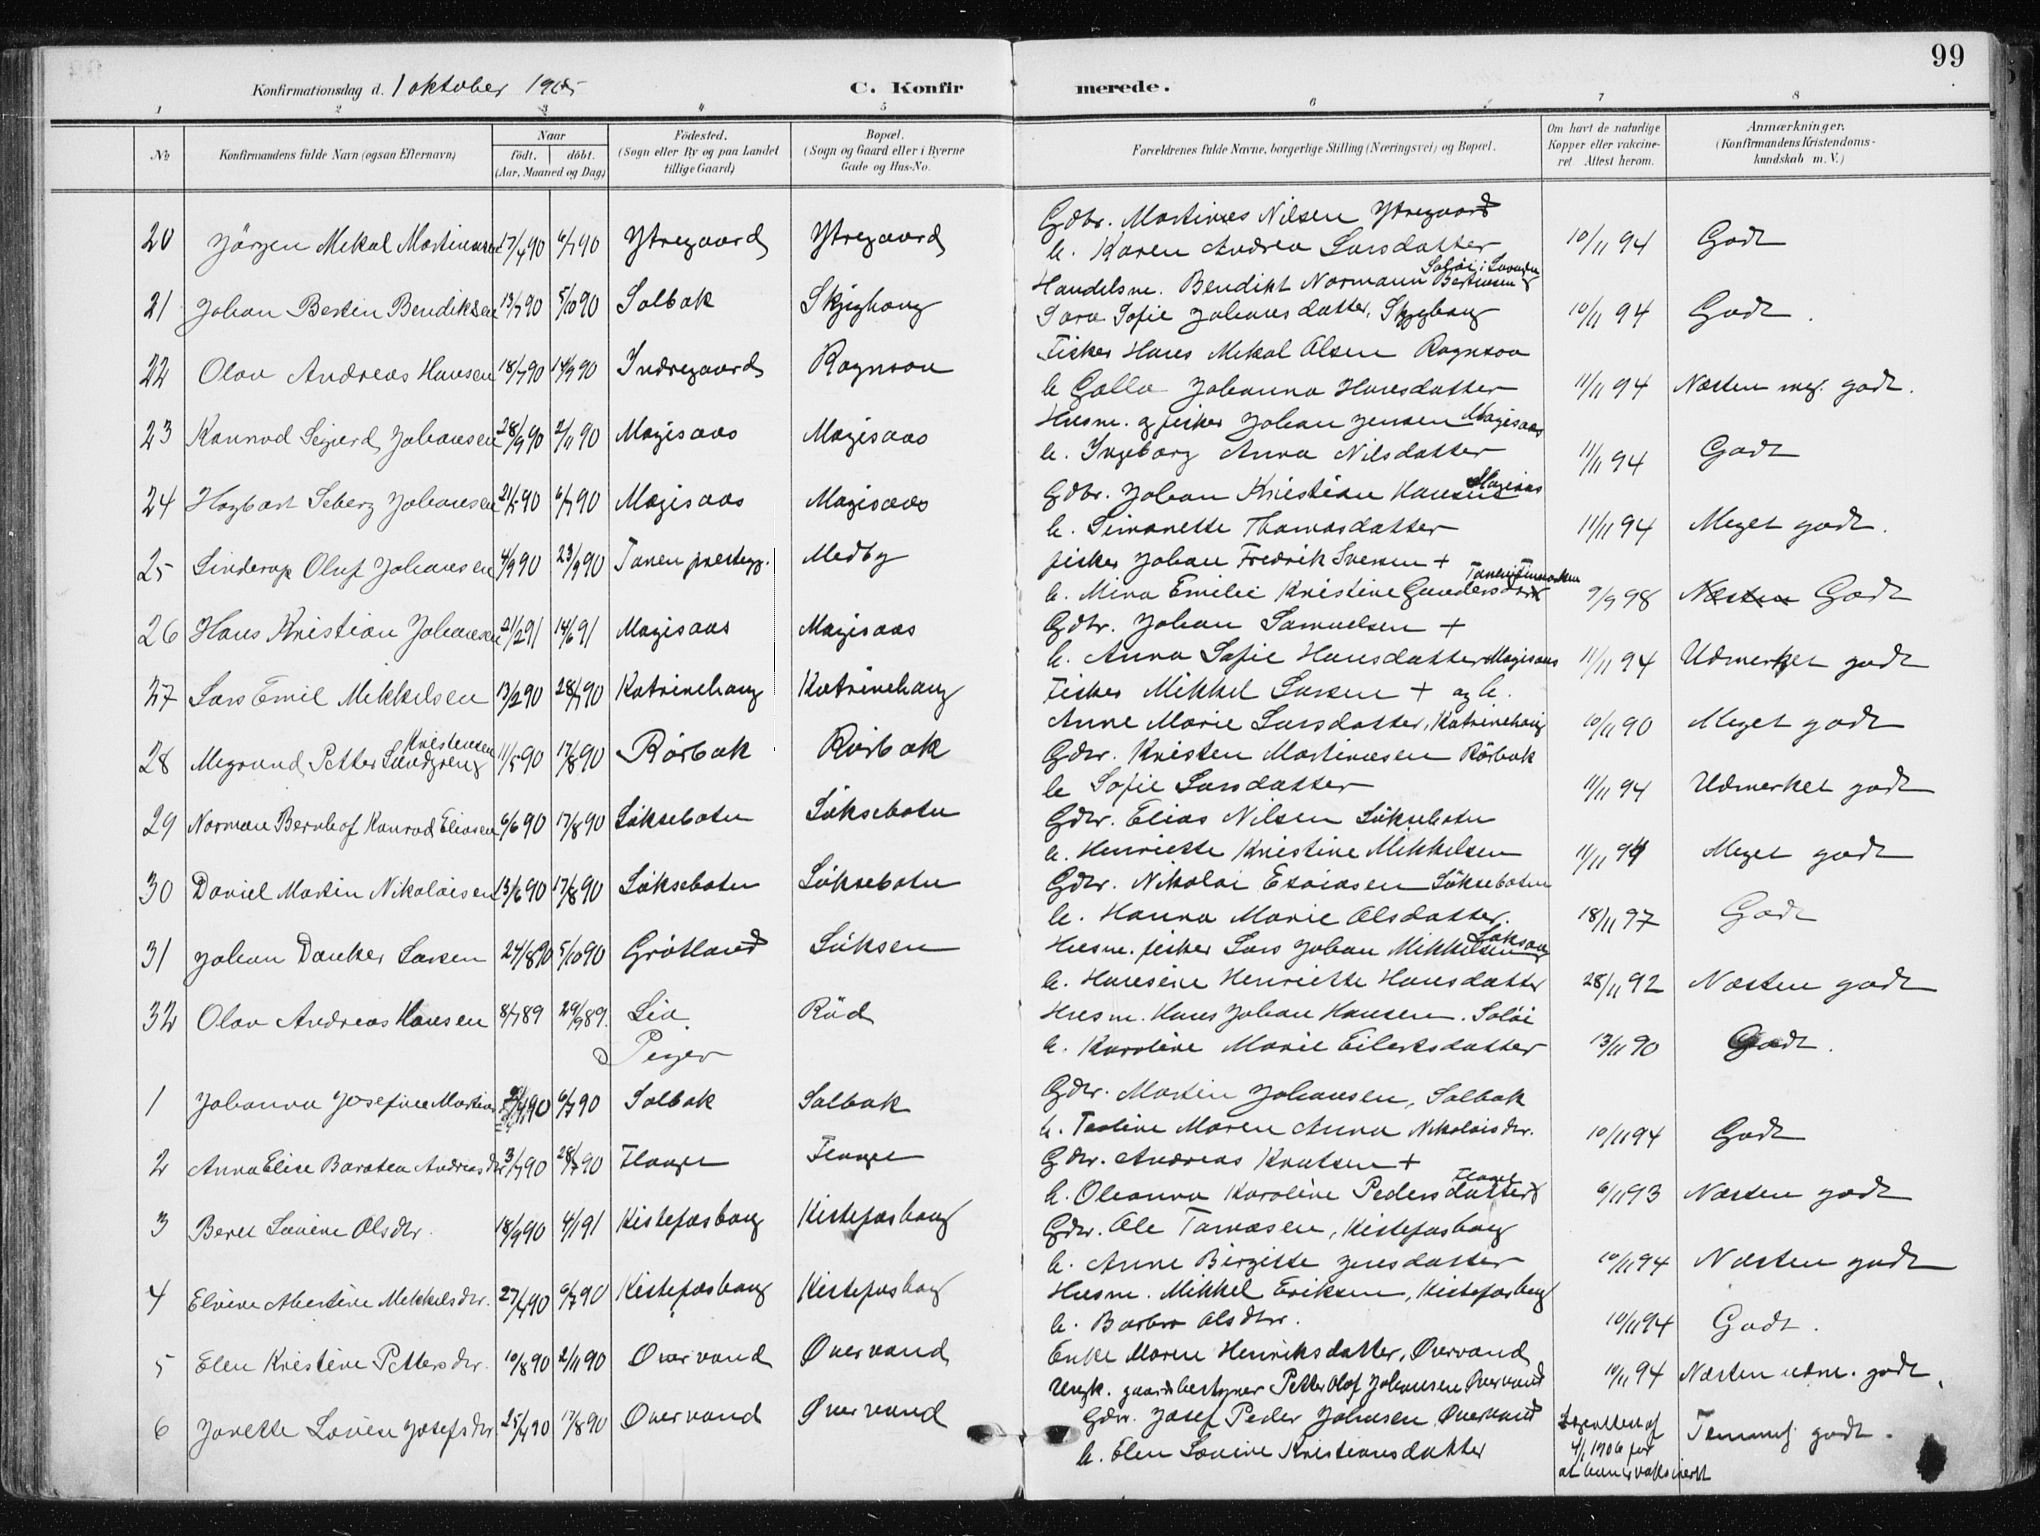 99
Konfirmationsdag d. 1 oktober 1905
C. Konfirmerede.
1 2 3 4 5 6 7 8
No
Konfirmandens fulde Navn (ogsaa Efternavn)
Naar
födt. döbt.
(Aar, Maaned og Dag)
Födested.
(Sogn eller By og paa Landet
tillige Gaard)
Bopæl.
(Sogn og Gaard eller i Byerne
Gade og Hus-No.
Forældrenes fulde Navne, borgerlige Stilling (Næringsvei) og Bopæl.
Om havt de naturlige
Kopper eller vakcine-
ret Attest herom.
Anmærkninger.
(Konfirmandens Kristendoms-
kundskab m. V.)
20 Jörgen Mekal Martinusen 17/4 90 6/7 90 Ytregaard Ytregaard
Gdbr. Martines Nilsen Ytregaard
h. Karen Andrea Larsdatter 10/11 94 Godt
21 Johan Bertin Bendiksen 13/7 90 5/10 90 Solbak Skjighaug
Handelsm. Bendikt Normann Bertinsen
Sara Sofie Johansdatter, 10/11 94 Godt.
22 Olav Andreas Hansen 18/7 90 14/9 90 Indregaard Rognsaa
Fisker Hans Mekal Olsen Rognsaa
h Galla Johanna Hansdatter 11/11 94 Næsten meg. godt.
23 Konrad Sigurd Johansen 28/9 90 2/11 90 Magisaas Magisaas
Husm. og fisker Johan Jensen Magisaas
h. Ingeborg Anna Nilsdatter 11/11 94 Godt
24 Hagbart Seberg Johansen 21/5 90 6/7 90 Magisaas Magisaas
Gdbr. Johan Kristian Hansen Magisaas
h. Simonette Thomasdatter 11/11 94 Meget godt.
25 Sinderup Oluf Johansen 4/9 90 23/9 90 Tanen prestegj. Medby
fisker Johan Fredrik Svensen +
h. Mina Emilie Kristine Gundersdatr 9/9 98 Næsten Godt
26 Hans Kristian Johansen 21/2 91 14/6 91 Magisaas Magisaas
Gdbr. Johan Samuelsen +
h. Anna Sofie Hansdatter Magisaas 11/11 94 Udmerket godt
27 Lars Emil Mikkelsen 13/2 90 28/7 90 Katrinehaug Katrinehaug
Fisker Mikkel Larsen + og h.
Anne Marie Larsdatter, Katrinehaug 10/11 90 Meget godt
28 Magnund Petter Lundgreng Kristensen 11/5 90 17/8 90 Rörbak Rörbak
Gdbr. Kristen Martinusen Rörbak
h Sofie Larsdatter 11/11 94 Udmerket godt
29 Norman Bernhof Konrad Eliasen 6/6 90 17/8 90 Söksebotn Söksebotn
Gdbr. Elias Nilsen Söksebotn
h. Henriette Kristine Mikkelsen 11/11 94 Meget godt
30 Daniel Martin Nikolaisen 13/6 90 17/8 90 Söksebotn Söksebotn
Gdbr. Nikolai Esaiasen Söksebotn
h. Hanna Marie Olsdatter. 18/11 97 Godt
31 Johan Danker Larsen 24/8 90 5/10 90 Grötland Söksen
Husm. fisker Lars Johan Mikkelsen
h. Hansine Henriette Hansdatter 28/11 92 Næsten godt
32 Olav Andreas Hansen 8/7 89 29/9 89. Lia Röd
Husm. Hans Johan Hansen. Solöi
h. Karoline Marie Eilertsdatter 13/11 90 Godt.
Piger
1 Johanna Josefine Martins 6/7 90 Solbak Solbak
Gdbr. Martin Johansen, Solbak
h. Taoline Maren Anna Nikolaisdr. 10/11 94 Godt
2 Anna Elise Baratea Andreasdtr 3/7 90 28/7 90 Flange Flange
Gdbr. Andreas Knutsen +
h. Oleanna Karoline Pedersdatter 6/11 93 Næsten godt
3 Beret Lovine Olsdtr. 18/9 90 4/1 91 Kistefosbaug Kistefosbaug
Gdbr. Ole Tomasen, Kistefosbaug
h. Anne Birgitte Jensdatter 10/11 94 Næsten godt
4 Elvine Albertine Mekkelsdtr. 27/4 90 6/7 90 Kistefosbaug Kistefosbaug
Husm. Mikkel Eriksen, Kistefosbaug
h. Barbro Olsdtr. 10/11 94 Godt.
5 Elen Kristine Pettersdtr. 10/8 90 2/11 90 Overvand Overvand
Enke Maren Henriksdatter, Overvand
Ungk. gaardbestyrer Petter Olaf Johansen Overvand 10/11 94 Næsten udm. godt.
6 Janette Lovise Josefsdtr 25/4 90 17/8 90 Overvand Overvand
Gdbr. Josef Peder Johnsen Overvand
h. Elen Lovine Kristiansdatter
4/1 1906 for
Temmel. godt.